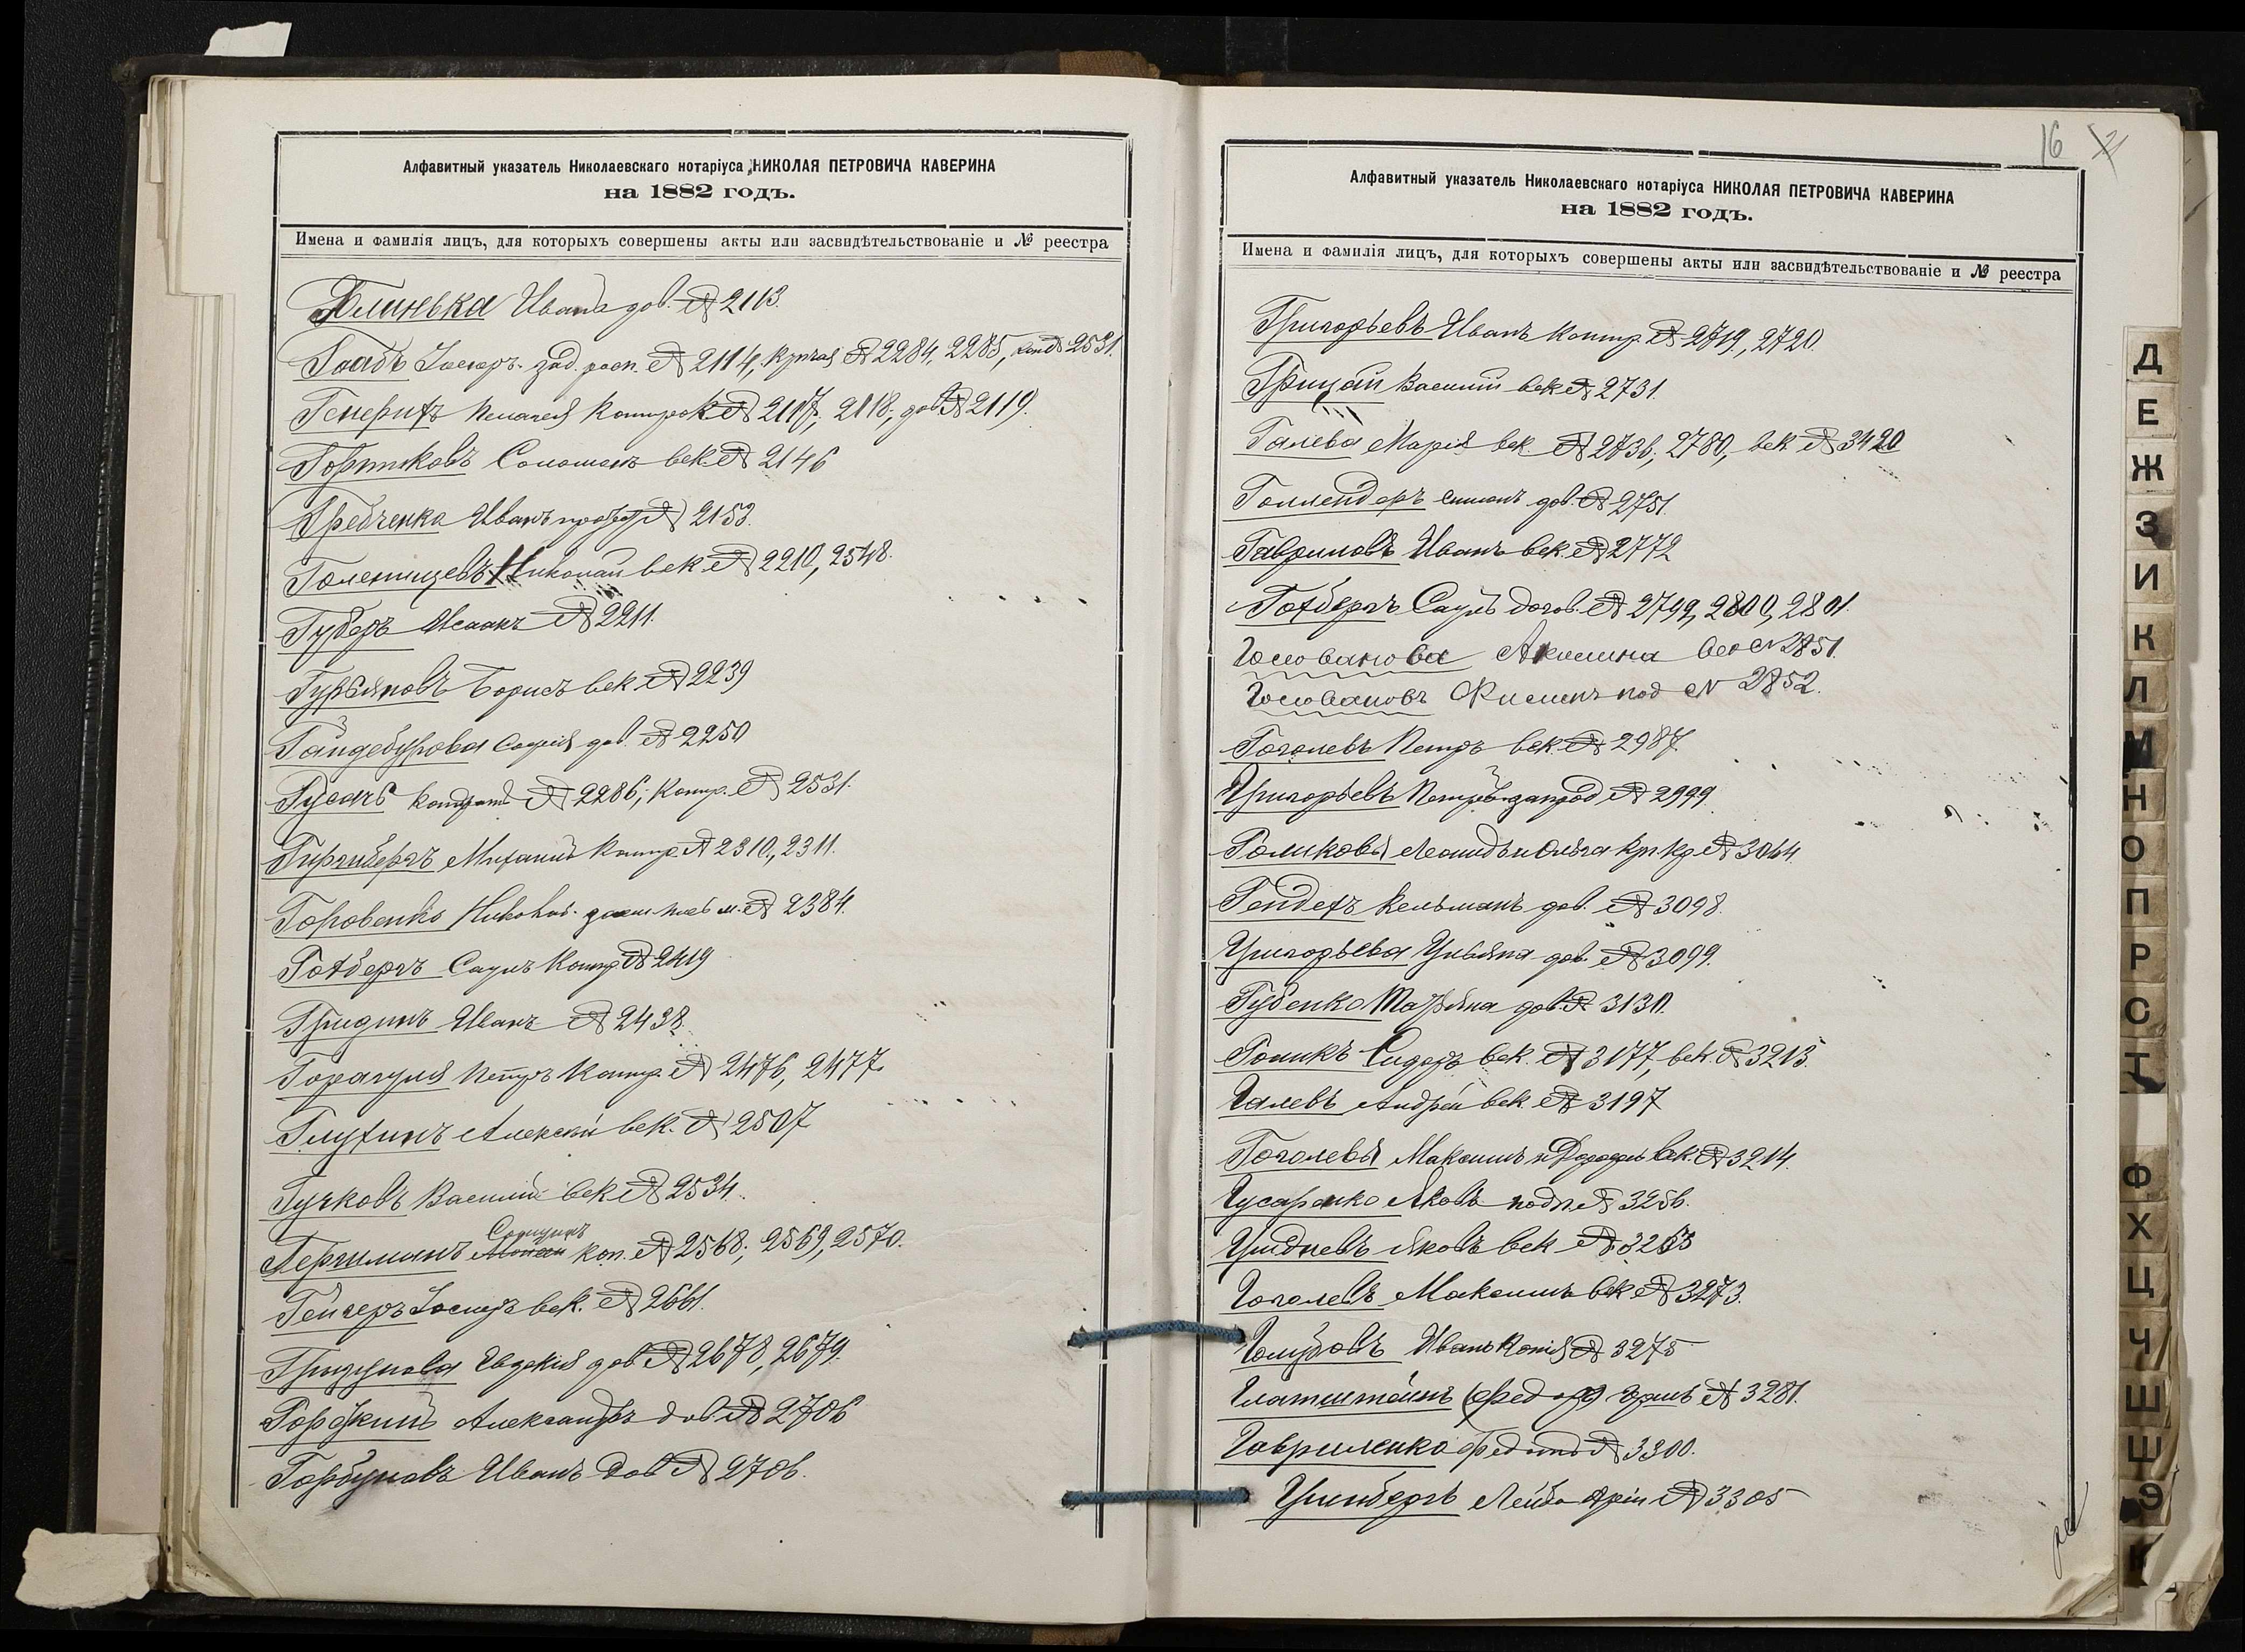 Алфавитный указатель Николаевскаго нотаріуса НИКОЛАЯ ПЕТРОВИЧА КАВЕРИНА
на 1882 годъ.
Имена и фамилія лицъ, для которыхъ совершены акты или засвидѣтельствованіе и № реестра
Глинька Ивана дов. № 2113.
Гаабъ № 2114, № 2284, 2285, 2531.
Генерихъ Пелагея № 2117, 2118, дов № 2119.
Соломонъ век. № 2146
Гребченко Иванъ № 2153.
Голенищевъ Николай век. № 2210, 2548.
Губеръ Исаакъ № 2211.
Гурьяновъ Борисъ век. № 2239
Гайдебурова Софія дов. № 2250
Гусачъ № 2286; контр. № 2531.
Гиргибергъ Михаилъ контр. № 2310, 2311.
Горовенко № 2384.
Готбергъ Саулъ контр № 2419
Гридинъ Иванъ № 2438.
Петръ контр. № 2476, 2477.
Глухинъ Алексѣй век. № 2507
Гучковъ Василій век № 2534.
Гершманъ коп. № 2568; 2569, 2570.
Гейгеръ Іосифъ век. № 2661.
Гризунова Евдокія дов № 2678, 2679.
Александръ дов № 2706
Горбуновъ Иванъ дов № 2706.
16
Алфавитный указатель Николаевскаго нотаріуса НИКОЛАЯ ПЕТРОВИЧА КАВЕРИНА
на 1882 годъ.
Имена и фамилія лицъ, для которыхъ совершены акты или засвидѣтельствованіе и № реестра
Григорьевъ Иванъ контр № 2719, 2720.
Грицай Василій век № 2731.
Галева Марія век. № 2736, 2780, век № 3420
Голлендеръ Симонъ дов. № 2751.
Гавриловъ Иванъ век. № 2772
Готбергъ Саулъ догов. № 2799, 2800, 2801.
Голованова Акилина век № 2851.
Головановъ Филипъ под № 2852.
Гоголевъ Петръ век. № 2987.
Григорьевъ Петръ № 2999.
Голиковы Леонидъ и Ольга № 3044
Гендехъ Кельманъ дов. № 3098.
Григорьева Ульяна дов. № 3099.
Губенко Татьяна дов. № 3130.
Голикъ Сидоръ век. № 3177, век. № 3213.
Галевъ Андрей век. № 3197
Гоголевы Максимъ и век. № 3214.
Гусаренко Яковъ подп № 3256.
Гридневъ Яковъ век № 3263
Гоголевъ Максимъ век № 3273.
Голубовъ Иванъ копія № 3275
Глатштейнъ № 3281.
Гавриленко Федотъ № 3300.
Гринбергъ Лейба № 3305
Д
Е
Ж
З
И
К
Л
М
Н
О
П
Р
С
Т
Ф
Х
Ц
Ч
Ш
Щ
Э